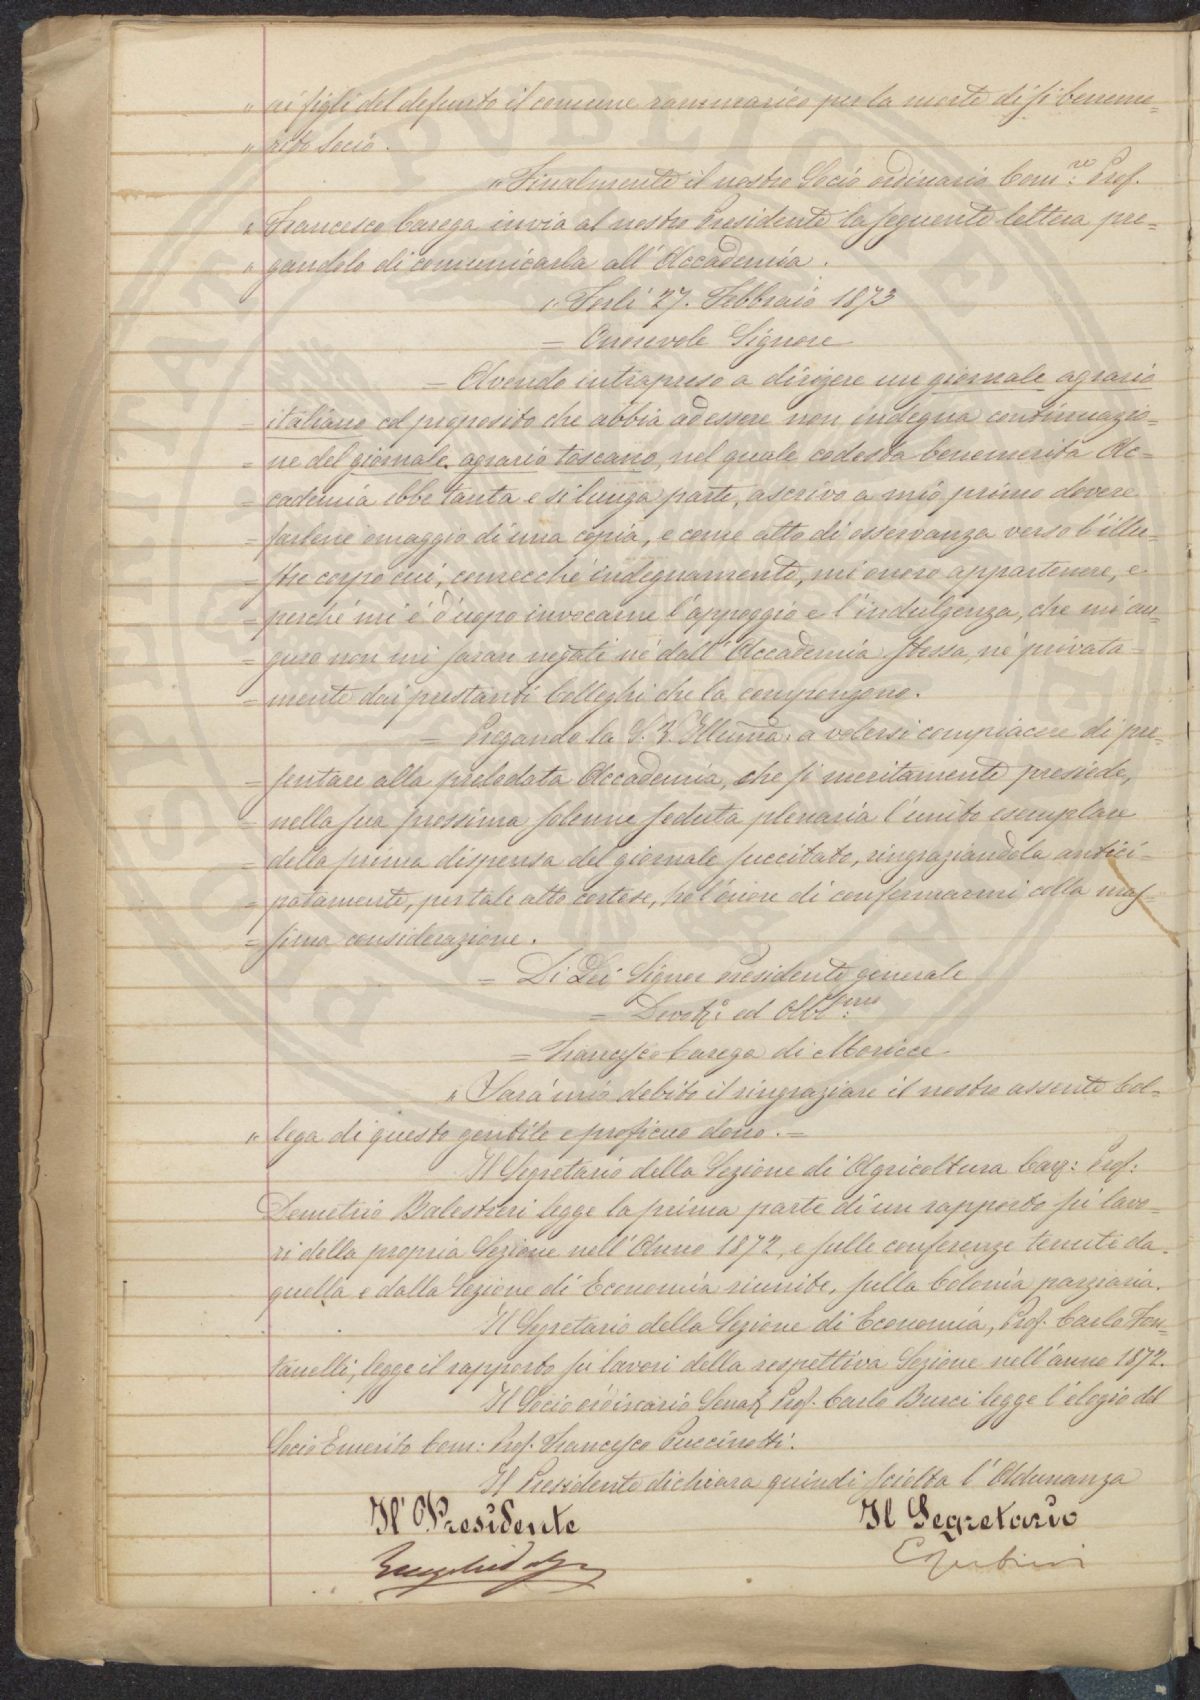 " ai figli del defunto il comune rammarico per la morte di si beneme=
" rito Socio.
" Finalmente il nostro Socio ordinario Com:re Prof.
" Francesco Carega invia al nostro Presidente la seguente lettera pre=
" gandolo di comunicarla all'Accademia.
" Forlì 27. Febbraio 1873
= Onorevole Signore
= Avendo intrapreso a dirigere un giornale agrario
= italiano col proposito che abbia ad essere non indegna continuazio=
= ne del giornale agrario toscano, nel quale codesta benemerita Ac=
= cademia ebbe tanta e si lunga parte, ascrivo a mio primo dovere
= farlene omaggio di una copia, e come atto di osservanza verso l'illu=
= stre corpo cui, comecchè indegnamente, mi onoro appartenere, e
= perchè mi è d'uopo invocarne l'appoggio e l'indulgenza, che mi au=
= guro non mi saran negati nè dall'Accademia stessa, nè privata=
= mente dai prestanti Colleghi che la compongono.
= Pregando la S. V. Illuma: a volersi compiacere di pre=
= sentare alla prelodata Accademia, che si meritamente presiede,
= nella sua prossima solenne seduta plenaria l'unito esemplare
= della prima dispensa del giornale succitato, ringraziandola antici=
= patamente, per tale atto cortese, ho l'onore di confermarmi colla mas=
= sima considerazione.
= Di Lei Signor Presidente generale
= Devot:o ed Obb:mo
= Francesco Carega di Muricce
" Sarà mio debito il ringraziare il nostro assente Col=
" lega di questo gentile e proficuo dono. =
Il Segretario della Sezione di Agricoltura Cav: Prof:
Demetrio Balestrieri legge la prima parte di un rapporto su i lavo=
ri della propria Sezione nell'Anno 1872, e sulle conferenze tenute da
quella e dalla Sezione di Economia riunite, sulla Colonia parziaria.
Il Segretario della Sezione di Economia, Prof. Carlo Fon=
tanelli, legge il rapporto su i lavori della respettiva Sezione nell'anno 1872.
Il Socio ordinario Senat. Prof. Carlo Burci legge l'elogio del
Socio Emerito Com: Prof. Francesco Puccinotti.
Il Presidente dichiara quindi sciolta l'Adunanza
Il Presidente
Il Segretario